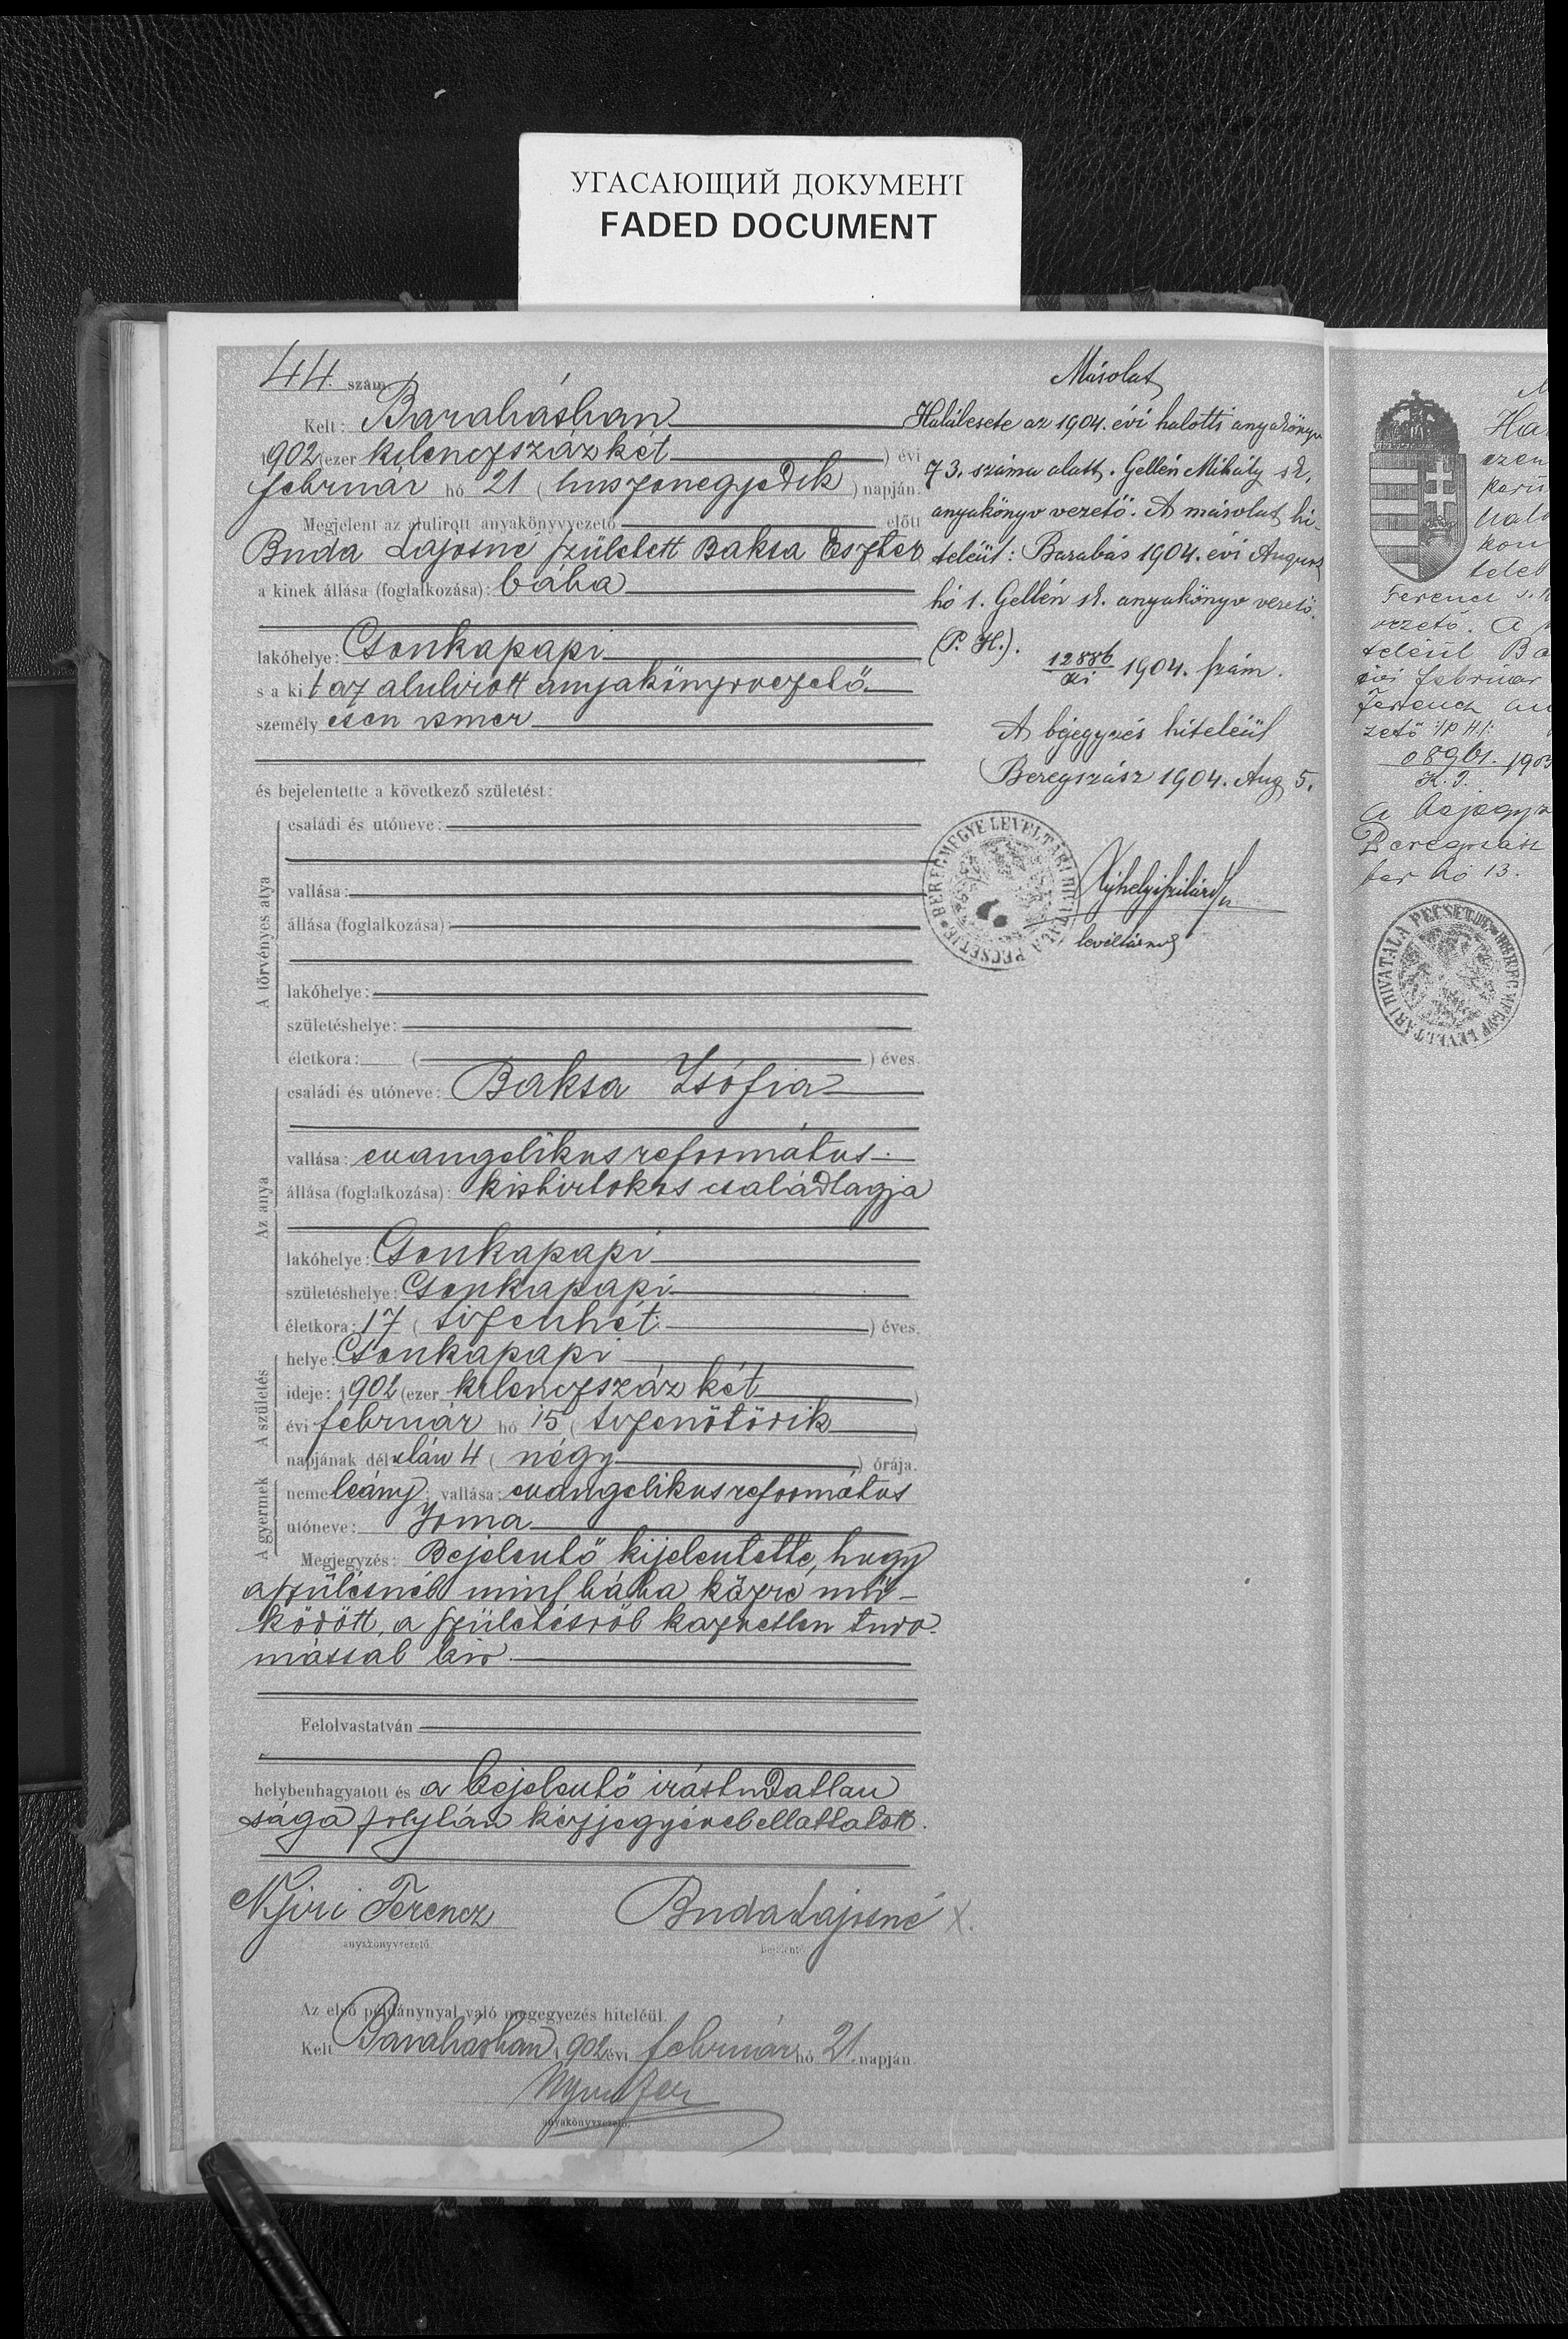 УГАСАЮЩИЙ ДОКУМЕНТ
FADED DOCUMENT
44. szám.
Kelt: Barabásban
1902 (ezer kilenczszáz két) évi
február hó 21 (huszonegyedik) napján.
Megjelent az alulirott anyakönyvvezető előtt
Buda Lajosné született Baksa Eszter
a kinek állása (foglalkozása): bába
lakóhelye: Csonkapapi
s a kit az alulirott anyakönyvvezető
személyesen ismer
és bejelentette a következő születést:
A törvényes atya
családi és utóneve:
vallása:
állása (foglalkozása):
lakóhelye:
születéshelye:
életkora: ( ) éves.
Az anya
családi és utóneve: Baksa Zsófia
vallása: evangelikus református
állása (foglalkozása): kisbirtokos családtagja
lakóhelye: Csonkapapi
születéshelye: Csonkapapi
életkora: 17 (tizenhét) éves.
A születés
helye: Csonkapapi
ideje: 1902 (ezer kilenczszáz két)
évi február hó 15 (tizenötödik)
napjának délelőtt 4 (négy) órája.
A gyermek
neme leány; vallása: evangelikus református
utóneve: Irma
Megjegyzés: Bejelentő kijelentette, hogy
a szülésnél mint bába közre mű-
ködött, a születésről közvetlen tudo-
mással bir.
Felolvastatván
helybenhagyatott és a bejelentő irástudatlan
sága folytán kézjegyével elláttatott.
Nyiri Ferencz Buda Lajosné X.
anyakönyvvezető. bejelentő.
Az első példánynyal való megegyezés hiteléül.
Kelt Barabásban 1902 évi február hó 21. napján
anyakönyvvezető.
Másolat
Halálesete az 1904. évi halotti anyakönyv
73. száma alatt. Gellén Mihály sk.
anyakönyv vezető. A másolat hi-
teléül: Barabás 1904. évi Augusz
hó 1. Gellén sk. anyakönyv vezető.
(P. H.).
12886/ki 1904. szám.
A bejegyzés hiteléül
Beregszász 1904. Aug 5.
BEREGMEGYE LEVÉLTÁRI HIVATALA PECSÉTJE
Ujhelyi Szilárd
levéltárnok
Ha
ezen
kerü
hal
kon
telet
Ferencz s.k
vezető. A
teléül Ba
évi február
Ferencz an
zető /P H/:
1903
K. I.
A bejegyz
Beregszász
ber hó 13.
BEREGMEGYE LEVÉLTÁRI HIVATALA PECSÉTJE